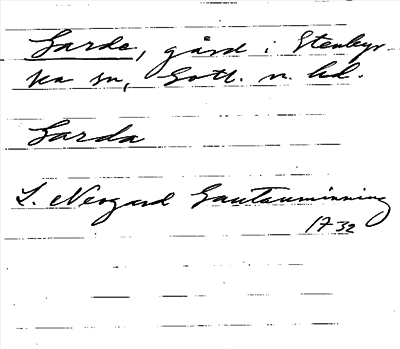 Garde, gård i Stenkyr
ka sn, Gotl. n. hd.
Garda
L. Nergard Gautauminning
1732